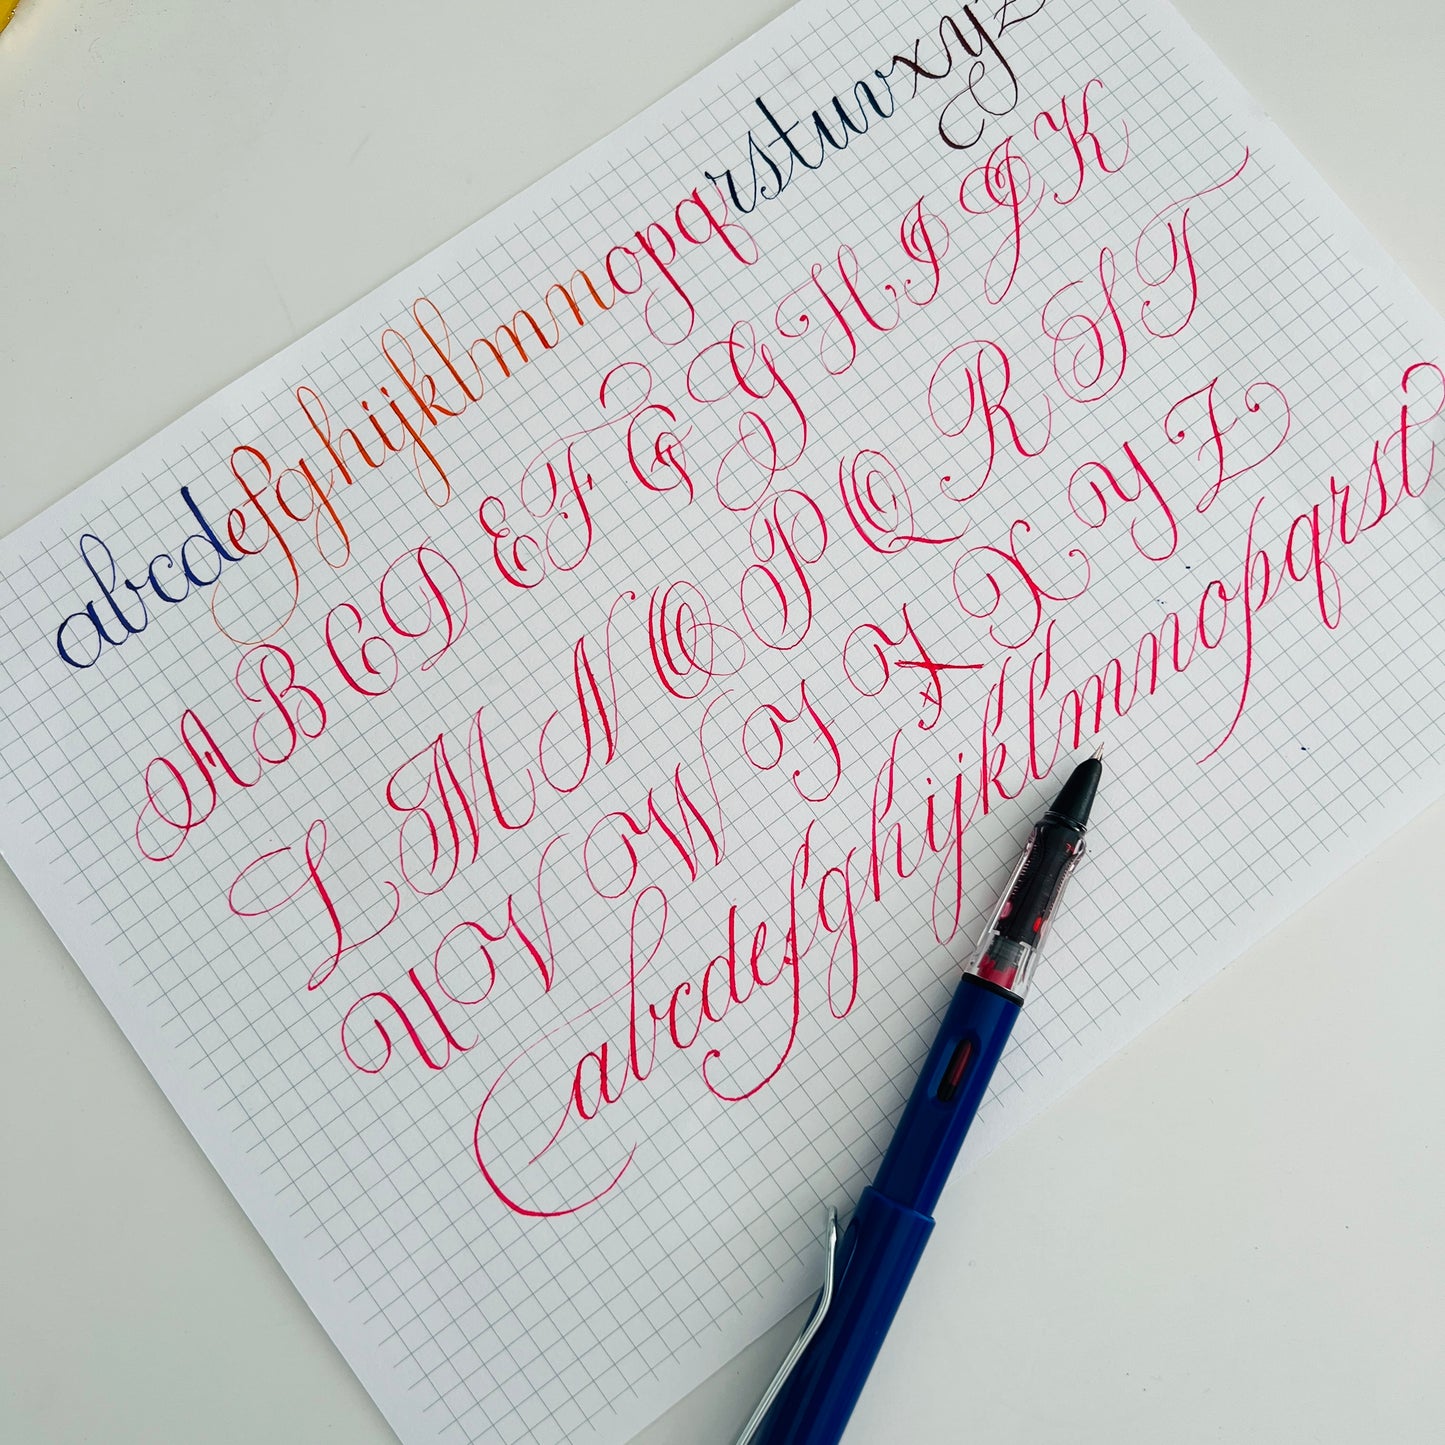 abcdefghijklmnopqrstuvwxyz
A B C D E F G G H I J K
L M N O P Q R S T
U V W X Y Z
abcdefghijklmnopqrst